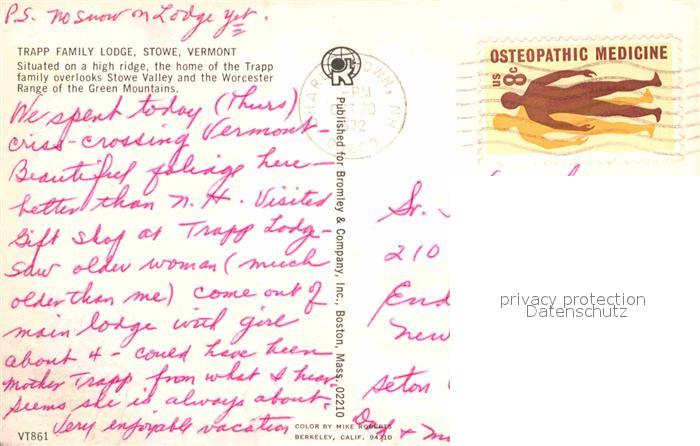 P.S. no snow on Lodge yet.
TRAPP FAMILY LODGE, STOWE, VERMONT
Situated on a high ridge, the home of the Trapp
family overlooks Stowe Valley and the Worcester
Range of the Green Mountains.
We spent today (Thurs)
criss-crossing Vermont-
Beautiful foliage here-
better than N.H. Visited
Gift Shop at Trapp Lodge-
Saw older woman (much
older than me) come out of
main lodge with girl
about 4 - could have been
Mother Trapp from what I hear
Seems she is always about.
Very enjoyable vacation
VT861
COLOR BY MIKE ROBERTS
BERKELEY, CALIF. 94710
Published for Bromley & Company, Inc., Boston, Mass. 02210
PM
OCT 20
1972
OSTEOPATHIC MEDICINE
US 8c
Sr.
210
End
New
Seton
Dad + M
privacy protection
Datenschutz